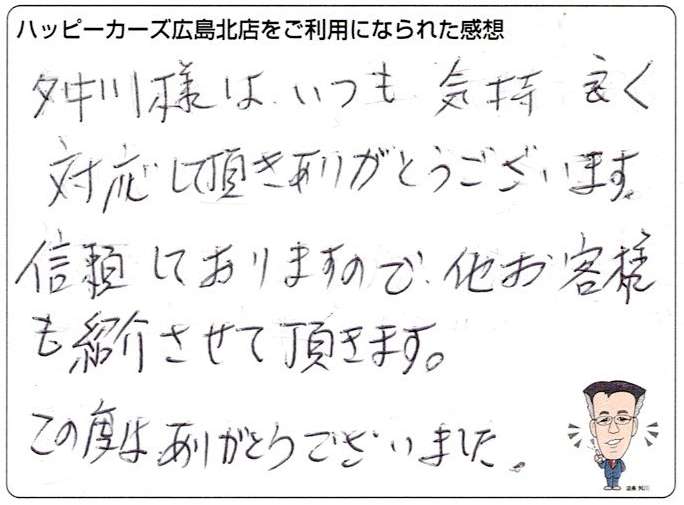 ハッピーカーズ広島北店をご利用になられた感想
舛川様は、いつも 気持 良く
対応して頂きありがとうございます。
信頼しておりますので、他お客様
も紹介させて頂きます。
この度は、ありがとうございました。